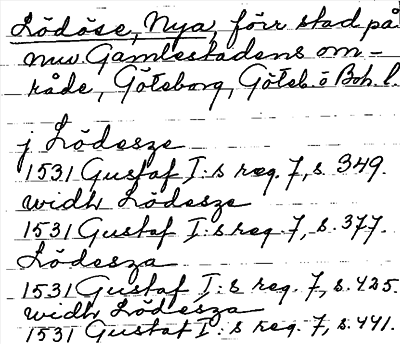 Lödöse, Nya, förr stad på
nuv Gamlestadens om-
råde, Göteborg, Göteb. o Boh. l.
j Lödesze
1531 Gustaf I:s reg. 7, s. 349.
widh Lödesze
1531 Gustaf I:s reg. 7, s. 377.
Lödesza
1531 Gustaf I:s reg. 7, s. 425.
widh Lödesza
1531 Gustaf I:s reg. 7, s. 441.